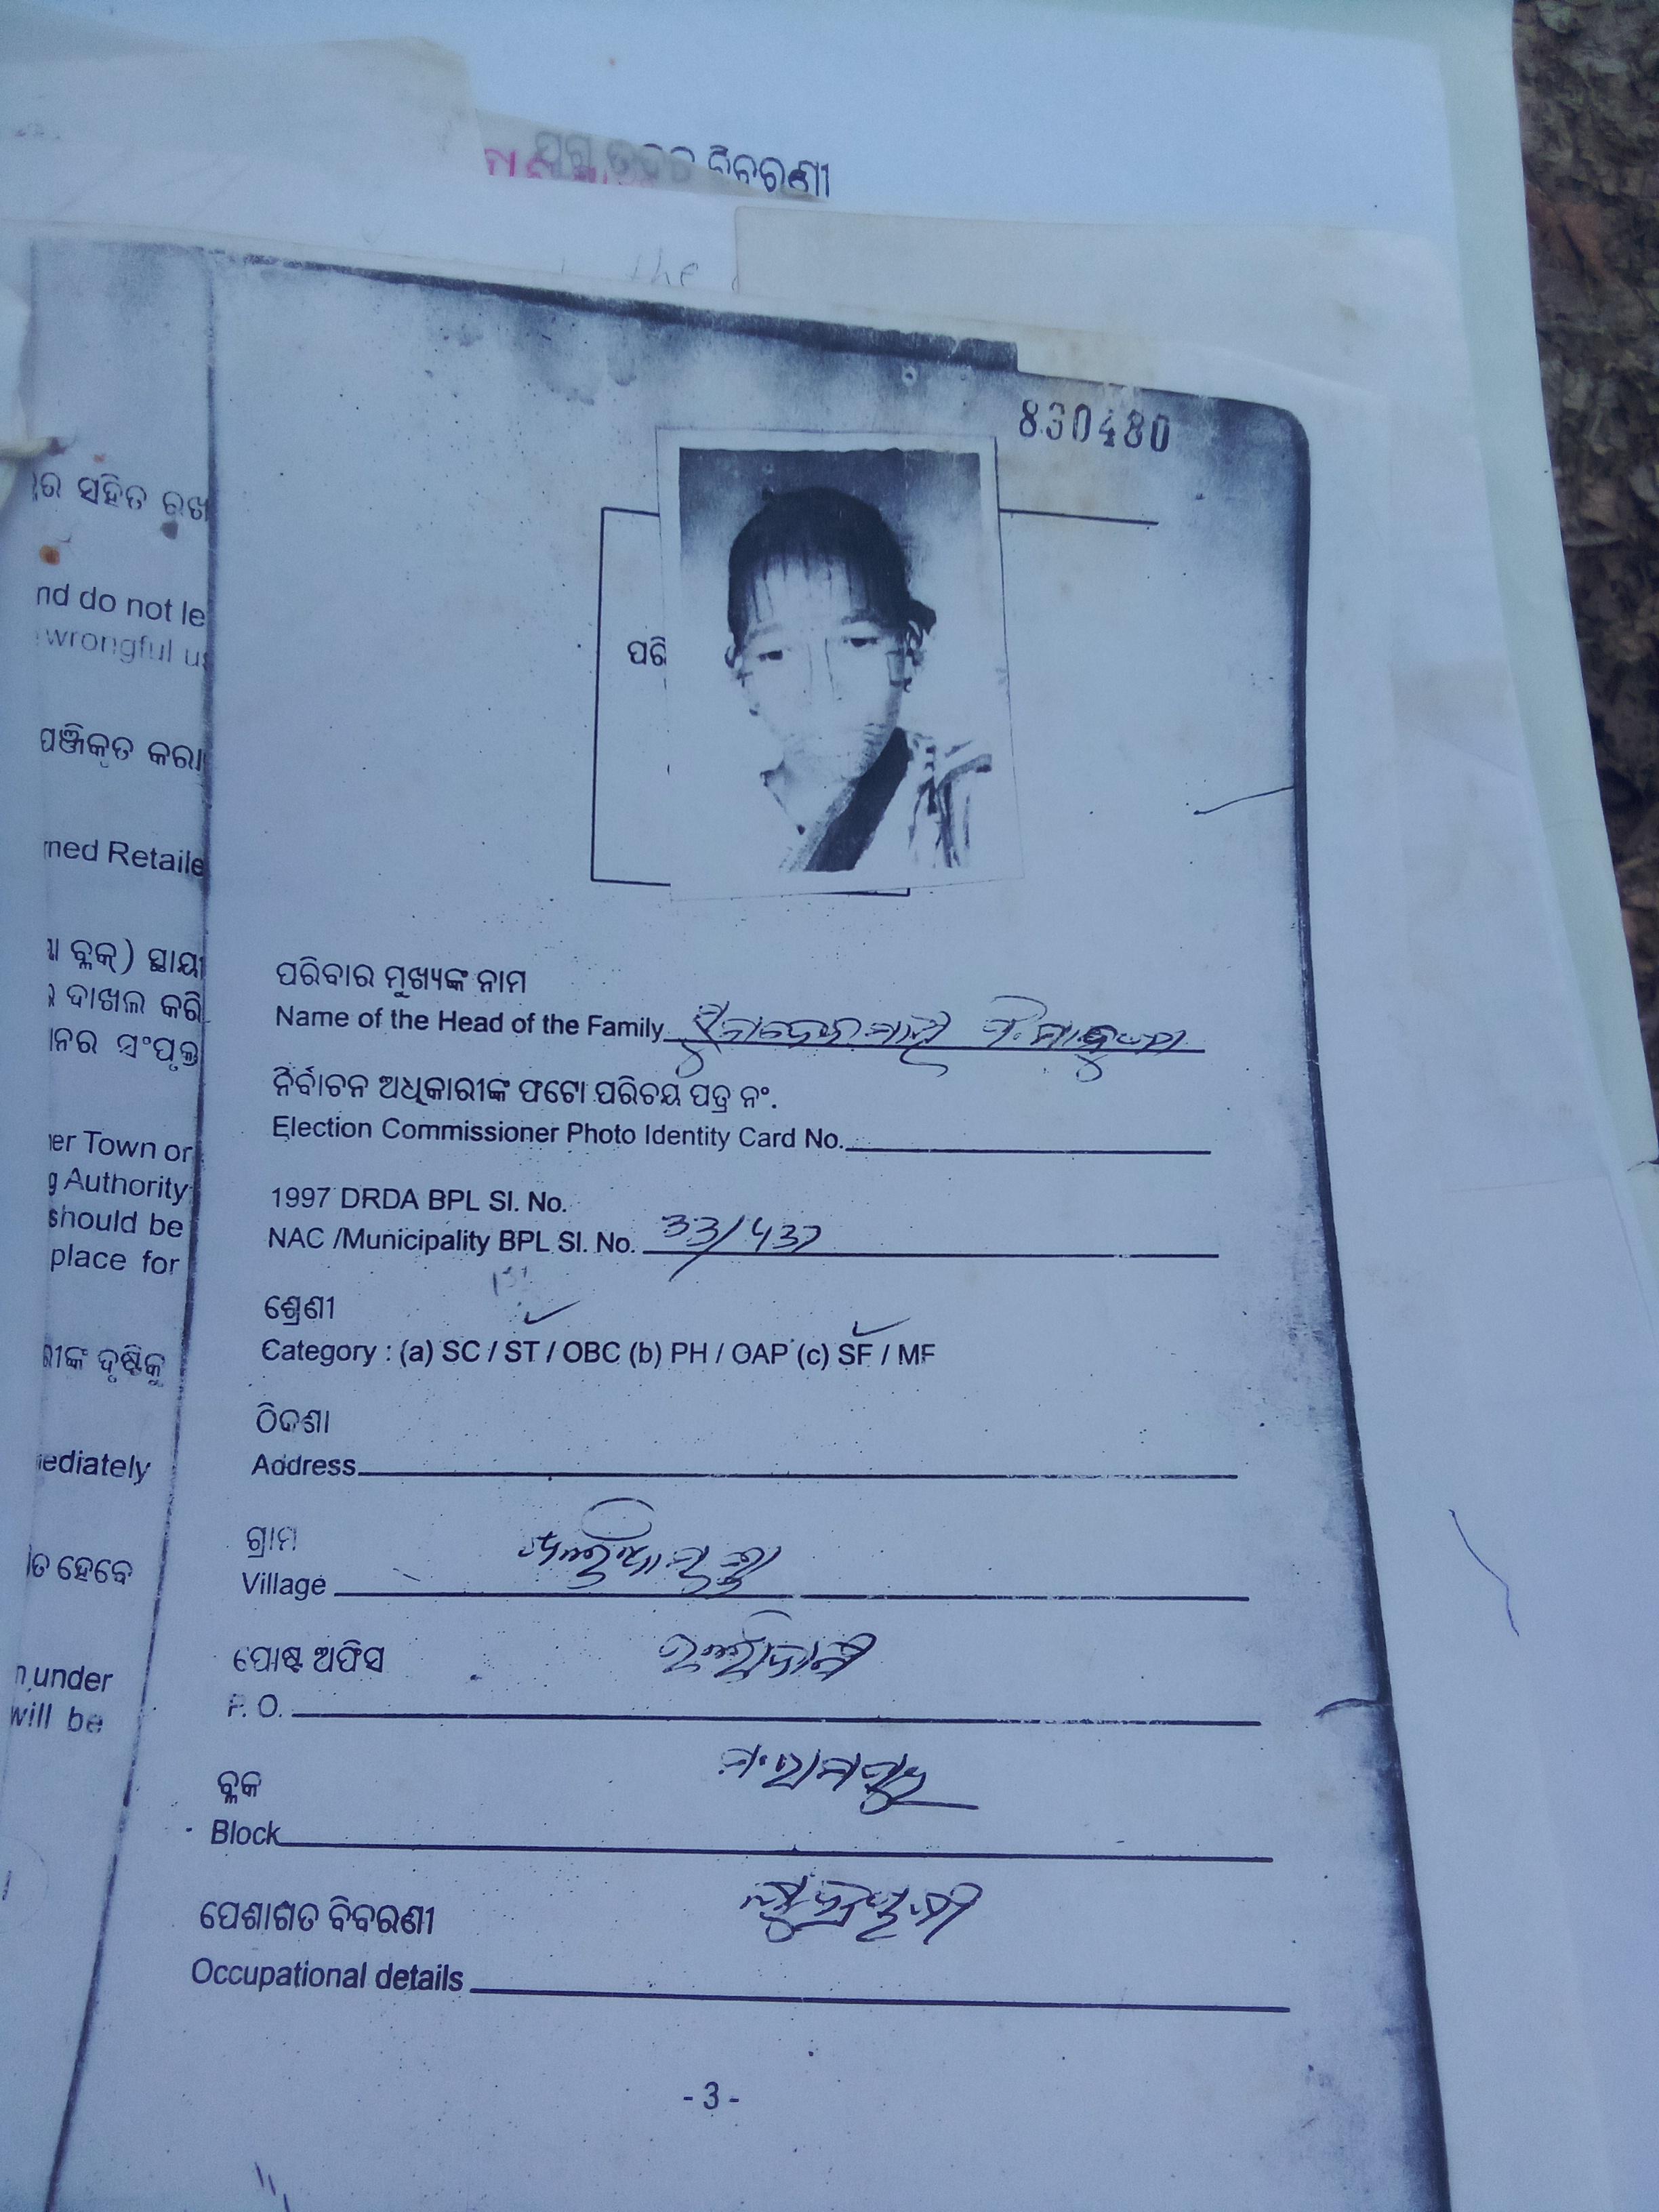 ବିବରଣୀ
the
830480
ର ସହିତ ରଖ
nd do not le
wrongful us
ପରି
ପଞ୍ଜିକୃତ କରା
med Retaile
ବ୍ଲକ୍) ସ୍ଥାୟୀ
ଦାଖଲ କରି
ନର ସଂପୃକ୍ତ
er Town or
g Authority
should be
place for
ୀଙ୍କ ଦୃଷ୍ଟିକୁ
ediately
ତ ହେବେ
n under
will be
ପରିବାର ମୁଖ୍ୟଙ୍କ ନାମ
Name of the Head of the Family
ନିର୍ବାଚନ ଅଧିକାରୀଙ୍କ ଫଟୋ ପରିଚୟ ପତ୍ର ନଂ.
Election Commissioner Photo Identity Card No.
1997 DRDA BPL Sl. No.
NAC /Municipality BPL Sl. No. 33/437
ଶ୍ରେଣୀ
Category : (a) SC / ST / OBC (b) PH / OAP (c) SF / MF
ଠିକଣା
Address
ଗ୍ରାମ
Village
ପୋଷ୍ଟ ଅଫିସ
P. O.
ବ୍ଲକ
Block
ପେଶାଗତ ବିବରଣୀ
Occupational details
- 3 -